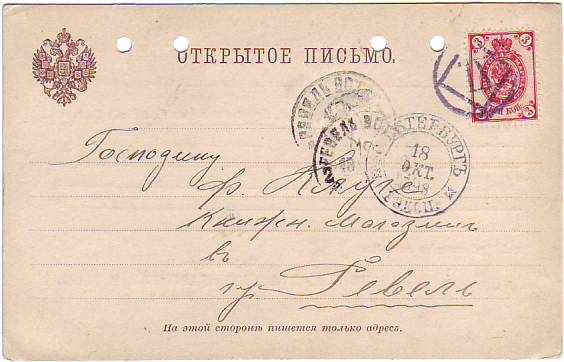 ОТКРЫТОЕ ПИСЬМО.
3 3
3 КОП. 3
РЕВЕЛЬ
РЕВЕЛЬ
ПЕТЕРБУРГЪ
18
ОКТ.
Господину
Ф. Клуге
Книжн. Магазинъ
въ
гр. Ревель
На этой сторонѣ пишется только адресъ.